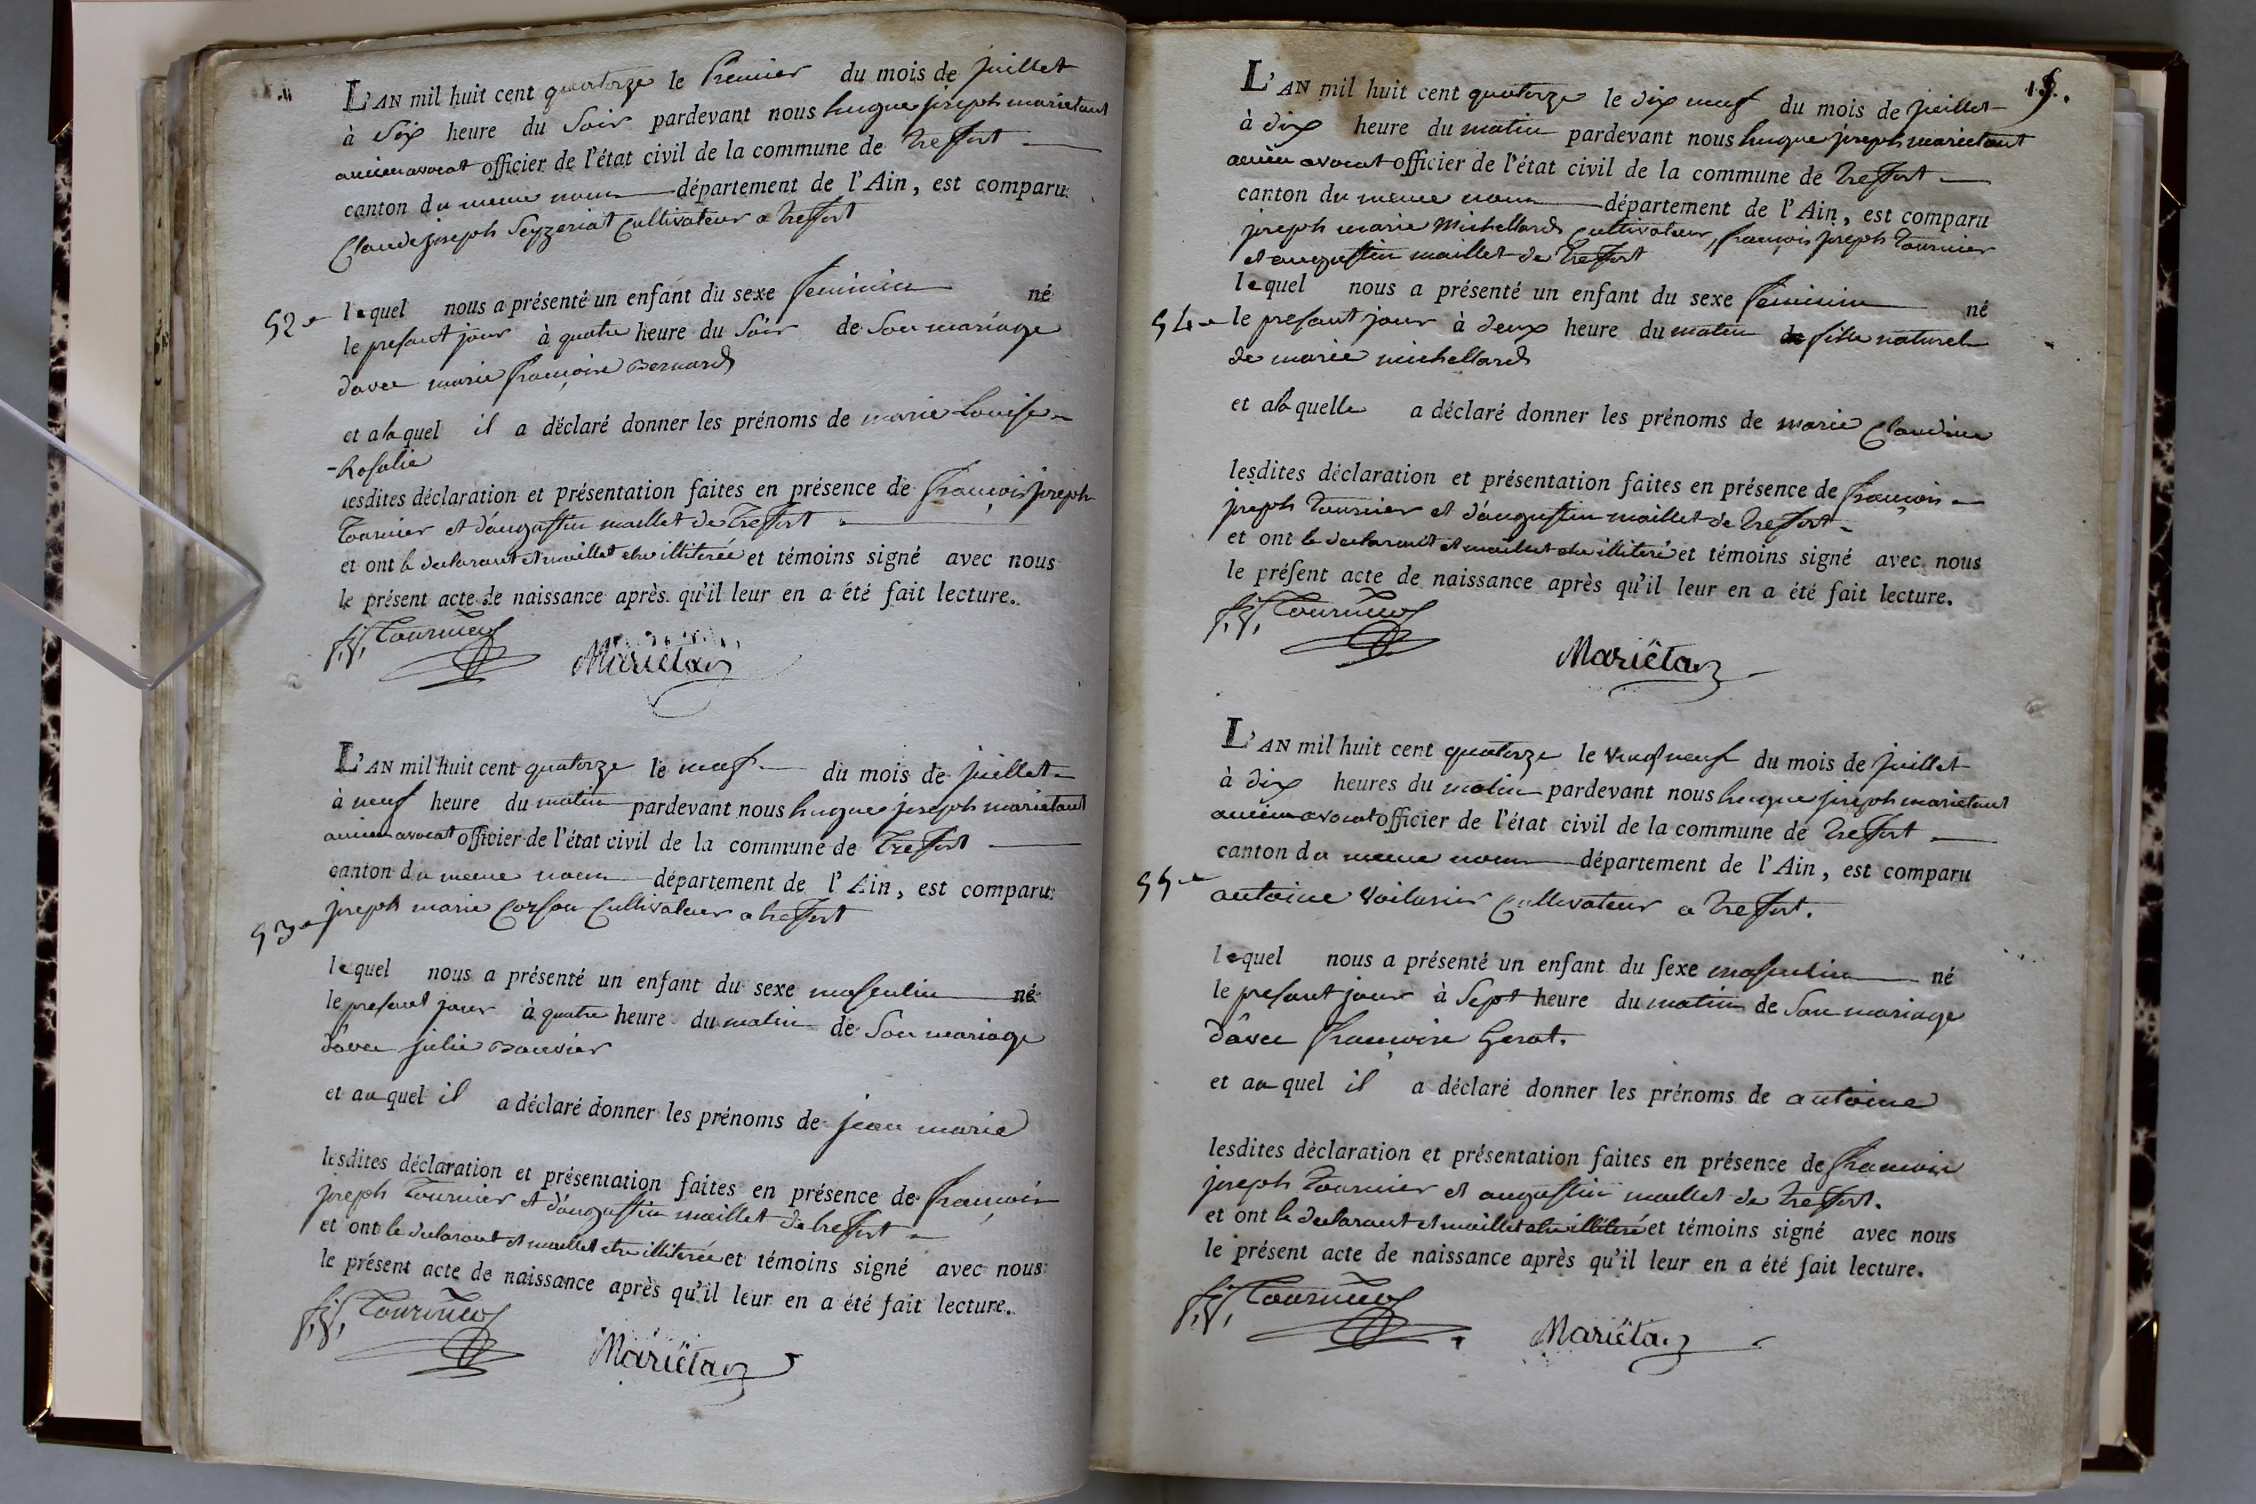 L'AN mil huit cent quatorze le Premier du mois de juillet
à Six heure du Soir pardevant nous hugue joseph marietant
ancien avocat officier de l'état civil de la commune de Treffort
canton du meme nom département de l'Ain, est comparu
Claude joseph Seyzeriat Cultivateur a treffort
52e lequel nous a présenté un enfant du sexe feminin né
le presant jour à quatre heure du Soir de Son mariage
davec marie françoise Bernard
et alaquel il a déclaré donner les prénoms de marie Louise
-Rosalie
lesdites déclaration et présentation faites en présence de françois joseph
Tournier et d'augustin maillet de Treffort
et ont le declarant et maillet etre illiterée et témoins signé avec nous
le présent acte de naissance après qu'il leur en a été fait lecture.
f. j. Tournier Mariétan
L'AN mil huit cent quatorze le neuf du mois de juillet
à neuf heure du matin pardevant nous hugue joseph marietant
ancien avocat officier de l'état civil de la commune de Treffort
canton du meme nom département de l'Ain, est comparu
53e joseph marie Corson Cultivateur a treffort
lequel nous a présenté un enfant du sexe masculin né
le presant jour à quatre heure du matin de Son mariage
davec julie Bouvier
et auquel il a déclaré donner les prénoms de jean marie
lesdites déclaration et présentation faites en présence de françois
joseph Tournier et d'augustin maillet de treffort
et ont le declarant et maillet etre illiterée et témoins signé avec nous
le présent acte de naissance après qu'il leur en a été fait lecture.
f. j. Tournier Mariétan
L'AN mil huit cent quatorze le dix neuf du mois de juillet
à dix heure du matin pardevant nous hugue joseph marietant
ancien avocat officier de l'état civil de la commune de Treffort
canton du meme nom département de l'Ain, est comparu
joseph marie Michellard cultivateur, françois joseph Tournier
et augustin maillet de Treffort
lequel nous a présenté un enfant du sexe feminin né
54e le presant jour à deux heure du matin fille naturel
de marie michellard
et alaquelle a déclaré donner les prénoms de marie Claudine
lesdites déclaration et présentation faites en présence de françois
joseph Tournier et d'augustin maillet de treffort
et ont le declarant et maillet etre illiteré et témoins signé avec nous
le présent acte de naissance après qu'il leur en a été fait lecture.
f. j. Tournier Mariétan
L'AN mil huit cent quatorze le vingt neuf du mois de juillet
à dix heures du matin pardevant nous hugue joseph marietant
ancien avocat officier de l'état civil de la commune de Treffort
canton du meme nom département de l'Ain, est comparu
55e antoine Cultivateur a treffort.
lequel nous a présenté un enfant du sexe masculin né
le presant jour à Sept heure du matin de Son mariage
d'avec françoise Gerat.
et auquel il a déclaré donner les prénoms de antoine
lesdites déclaration et présentation faites en présence de françois
joseph Tournier et augustin maillet de treffort.
et ont le declarant et maillet etre illiteré et témoins signé avec nous
le présent acte de naissance après qu'il leur en a été fait lecture.
f. j. Tournier Mariétan